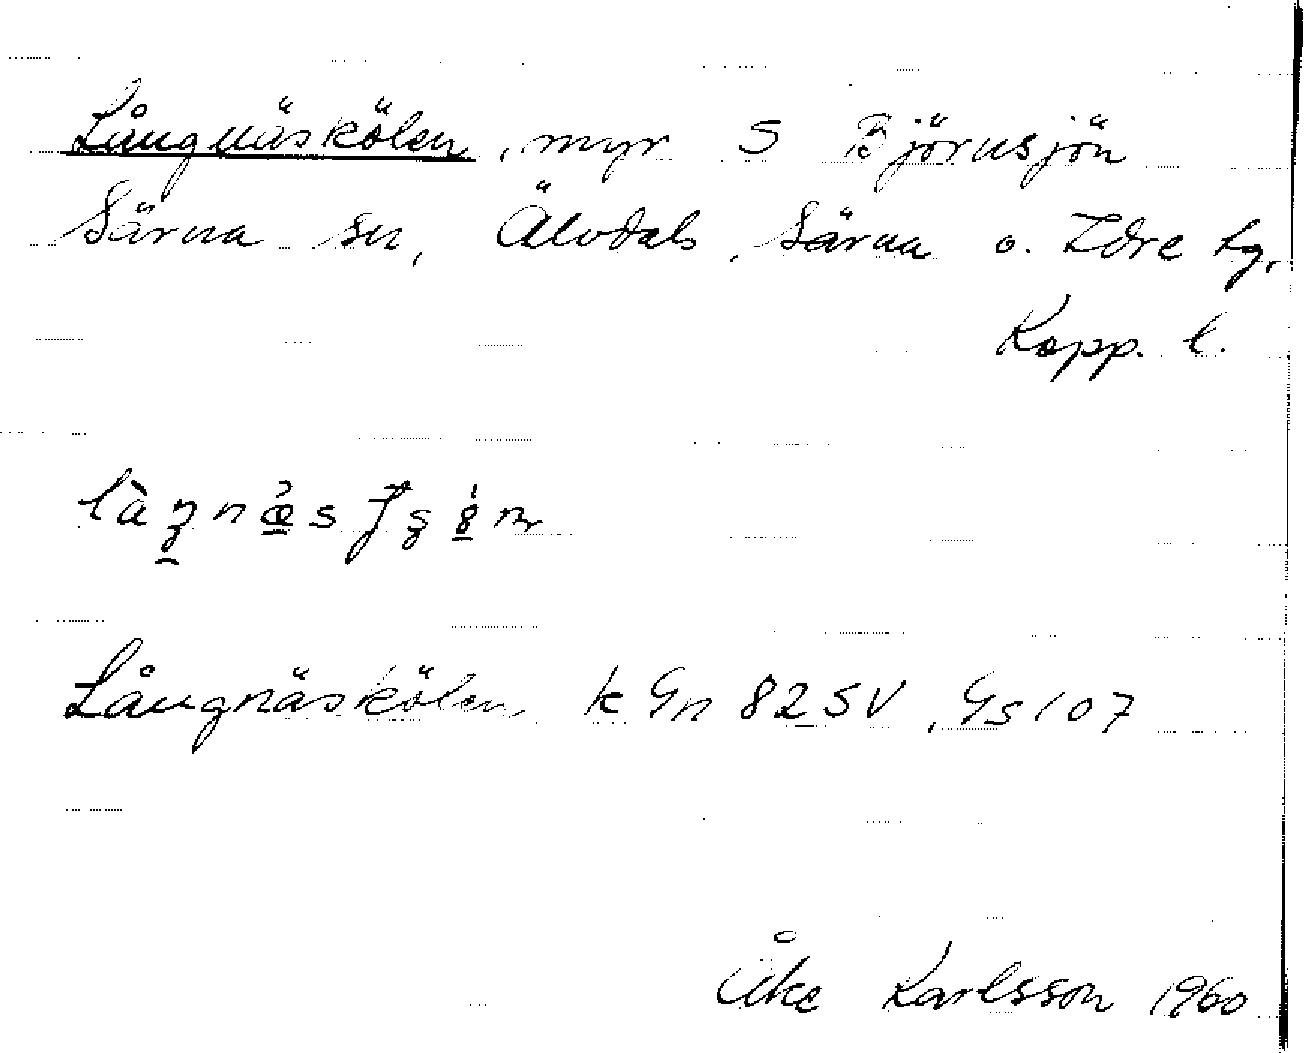 Långnäskölen, myr S Björnsjön
Särna sn, Älvdals, Särna o. Idre tg,
Kopp. l.
Långnäskölen k Gn 82 SV, Gs 107
Åke Karlsson 1960